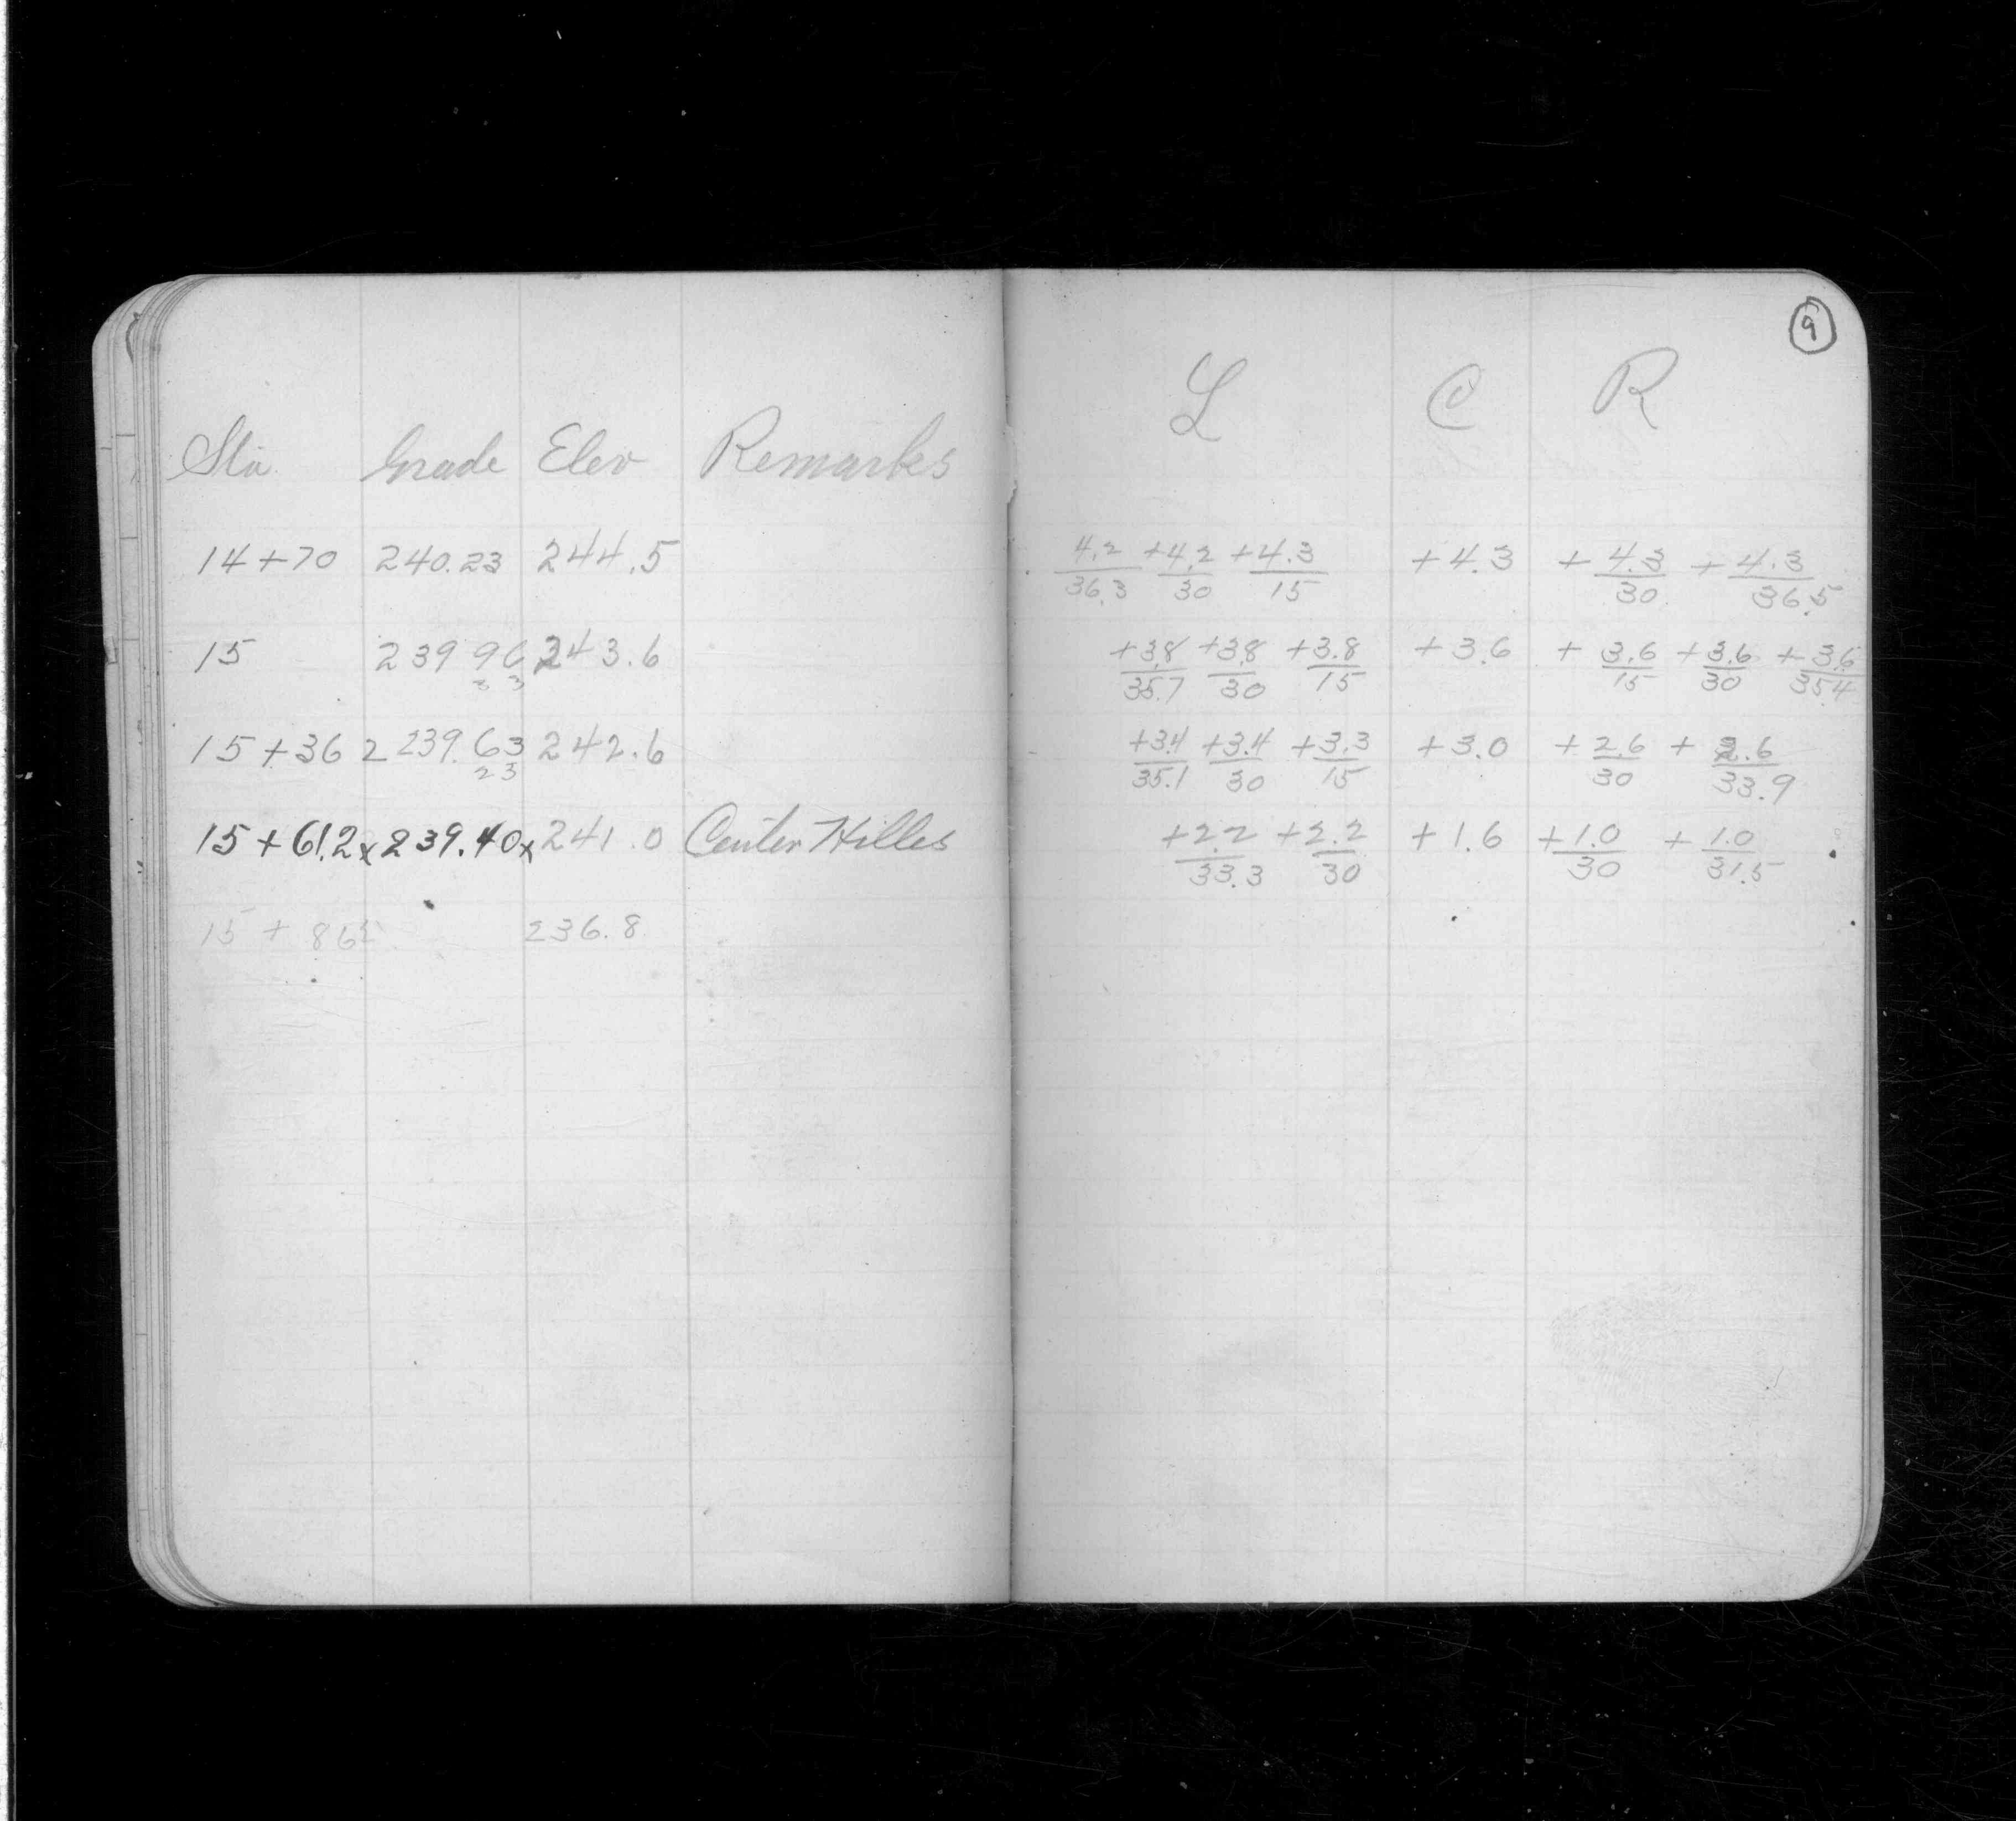 9
L C R
Sta. Grade Elev Remarks
14+70 240.23 244.5 4.2/36.3 +4.2/30 +4.3/15 +4.3 +4.3/30 +4.3/36.5
15 239 96 243.6 +3.8/35.7 +3.8/30 +3.8/15 +3.6 +3.6/15 +3.6/30 +3.6/35.4
3 3
15+36 2 239.63 242.6 +3.4/35.1 +3.4/30 +3.3/15 +3.0 +2.6/30 +2.6/33.9
23
15+61.2x 239.40x 241.0 Center Hilles +2.2/33.3 +2.2/30 +1.6 +1.0/30 +1.0/31.5
15 + 86 236.8